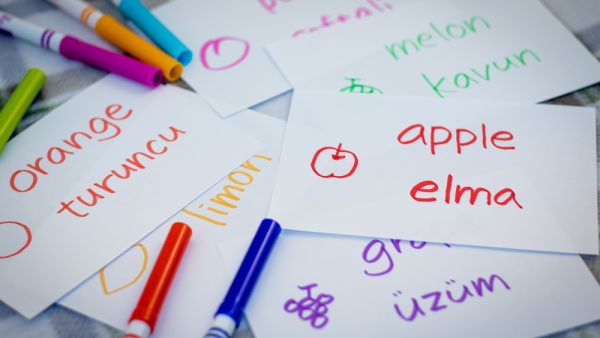 melon
kavun
orange
turuncu
limon
apple
elma
üzüm